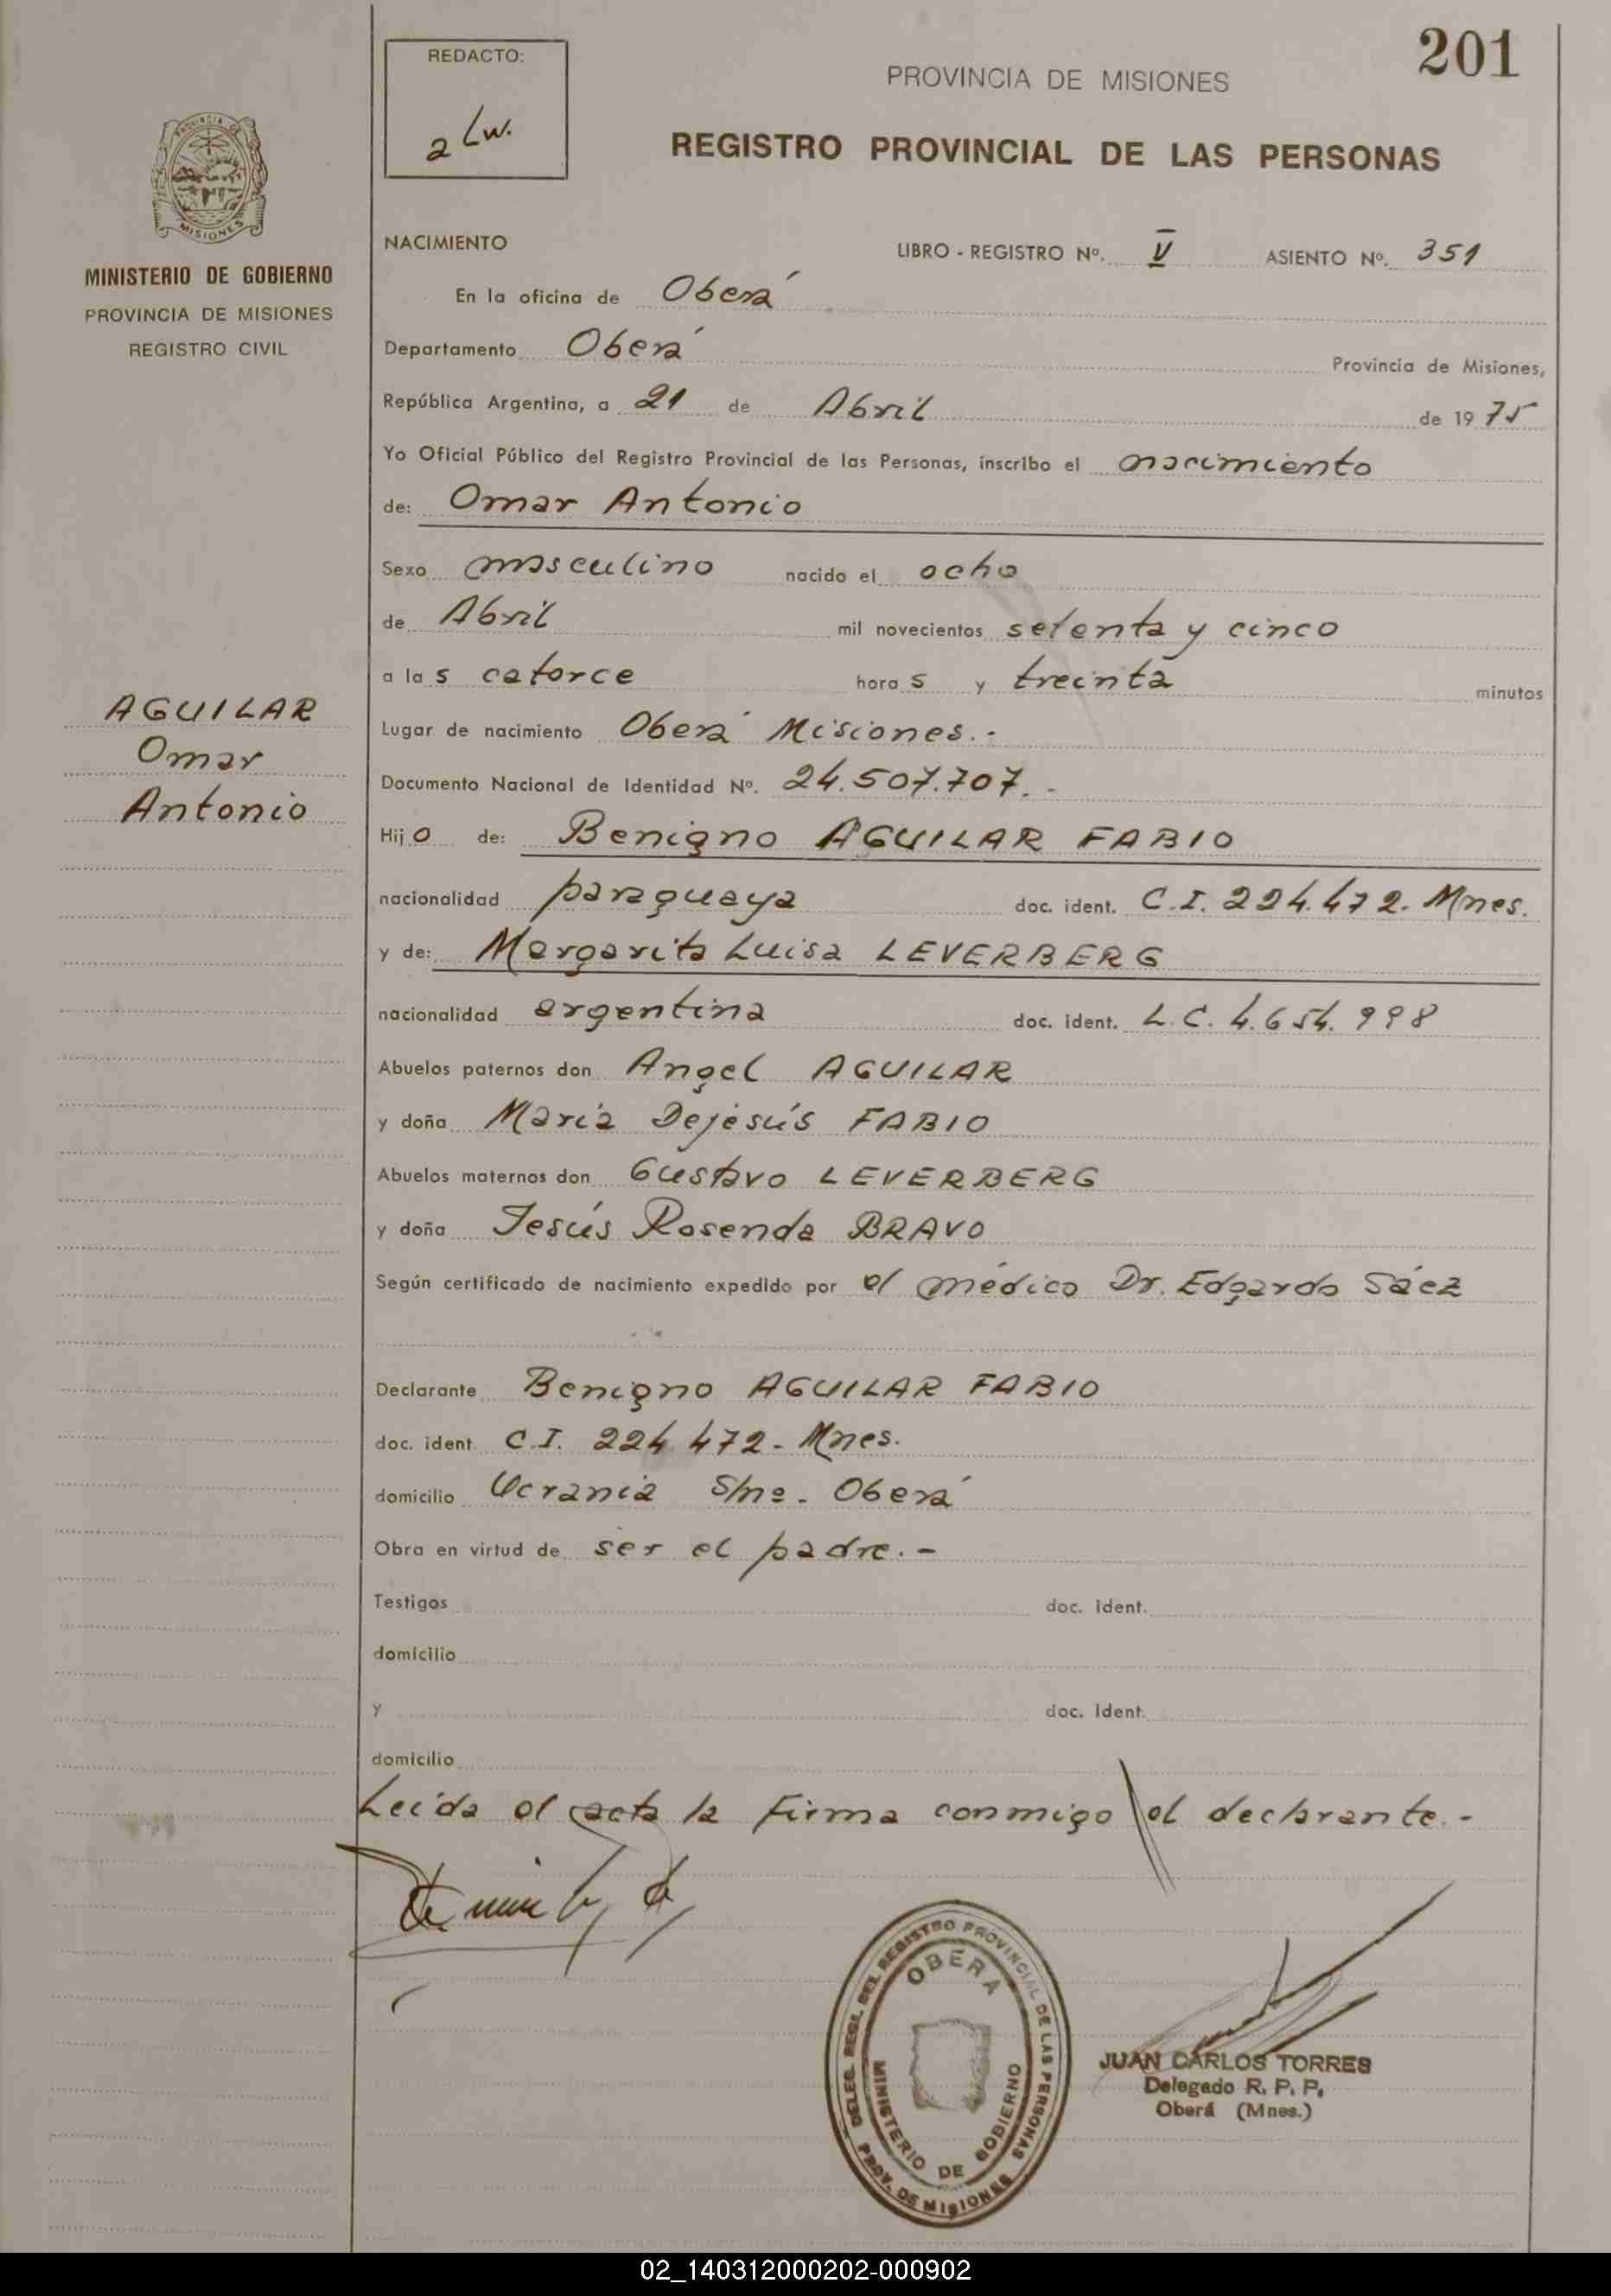 201
REDACTO:
PROVINCIA DE MISIONES
REGISTRO PROVINCIAL DE LAS PERSONAS
PROVINCIA DE
MISIONES
MINISTERIO DE GOBIERNO
PROVINCIA DE MISIONES
REGISTRO CIVIL
NACIMIENTO LIBRO - REGISTRO Nº. V ASIENTO Nº. 351
En la oficina de Oberá
Departamento Oberá Provincia de Misiones,
República Argentina, a 21 de Abril de 1975
Yo Oficial Público del Registro Provincial de las Personas, inscribo el nacimiento
de: Omar Antonio
Sexo masculino nacido el ocho
de Abril mil novecientos setenta y cinco
a las catorce horas y treinta minutos
AGUILAR
Omar
Antonio
Lugar de nacimiento Oberá Misiones.-
Documento Nacional de Identidad Nº. 24.507.707.-
Hijo de: Benigno AGUILAR FABIO
nacionalidad paraguaya doc. ident. C.I. 224.472. Mnes.
y de: Margarita Luisa LEVERBERG
nacionalidad argentina doc. ident. L.C. 4.654.998
Abuelos paternos don Angel AGUILAR
y doña Maria Dejesús FABIO
Abuelos maternos don Gustavo LEVERBERG
y doña Jesús Rosenda BRAVO
Según certificado de nacimiento expedido por el médico Dr. Edgardo Sáez
Declarante Benigno AGUILAR FABIO
doc. ident C.I. 224.472- Mnes.
domicilio Ucrania S/nº- Oberá
Obra en virtud de ser el padre.-
Testigos doc. ident.
domicilio
y doc. ident.
domicilio
Leída el acta la firma conmigo el declarante.-
DELEG. REGL. DEL REGISTRO PROVINCIAL DE LAS PERSONAS
OBERA
MINISTERIO DE GOBIERNO
PROV. DE MISIONES
JUAN CARLOS TORRES
Delegado R. P. P.
Oberá (Mnes.)
02_140312000202-000902